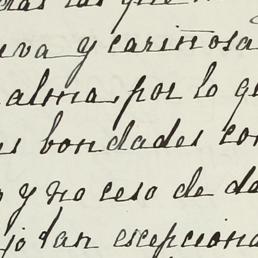 eras las que n
eva y cariñosa
alma, por lo qu
s bondades con
o y no ceso de da
jo tan escepciona